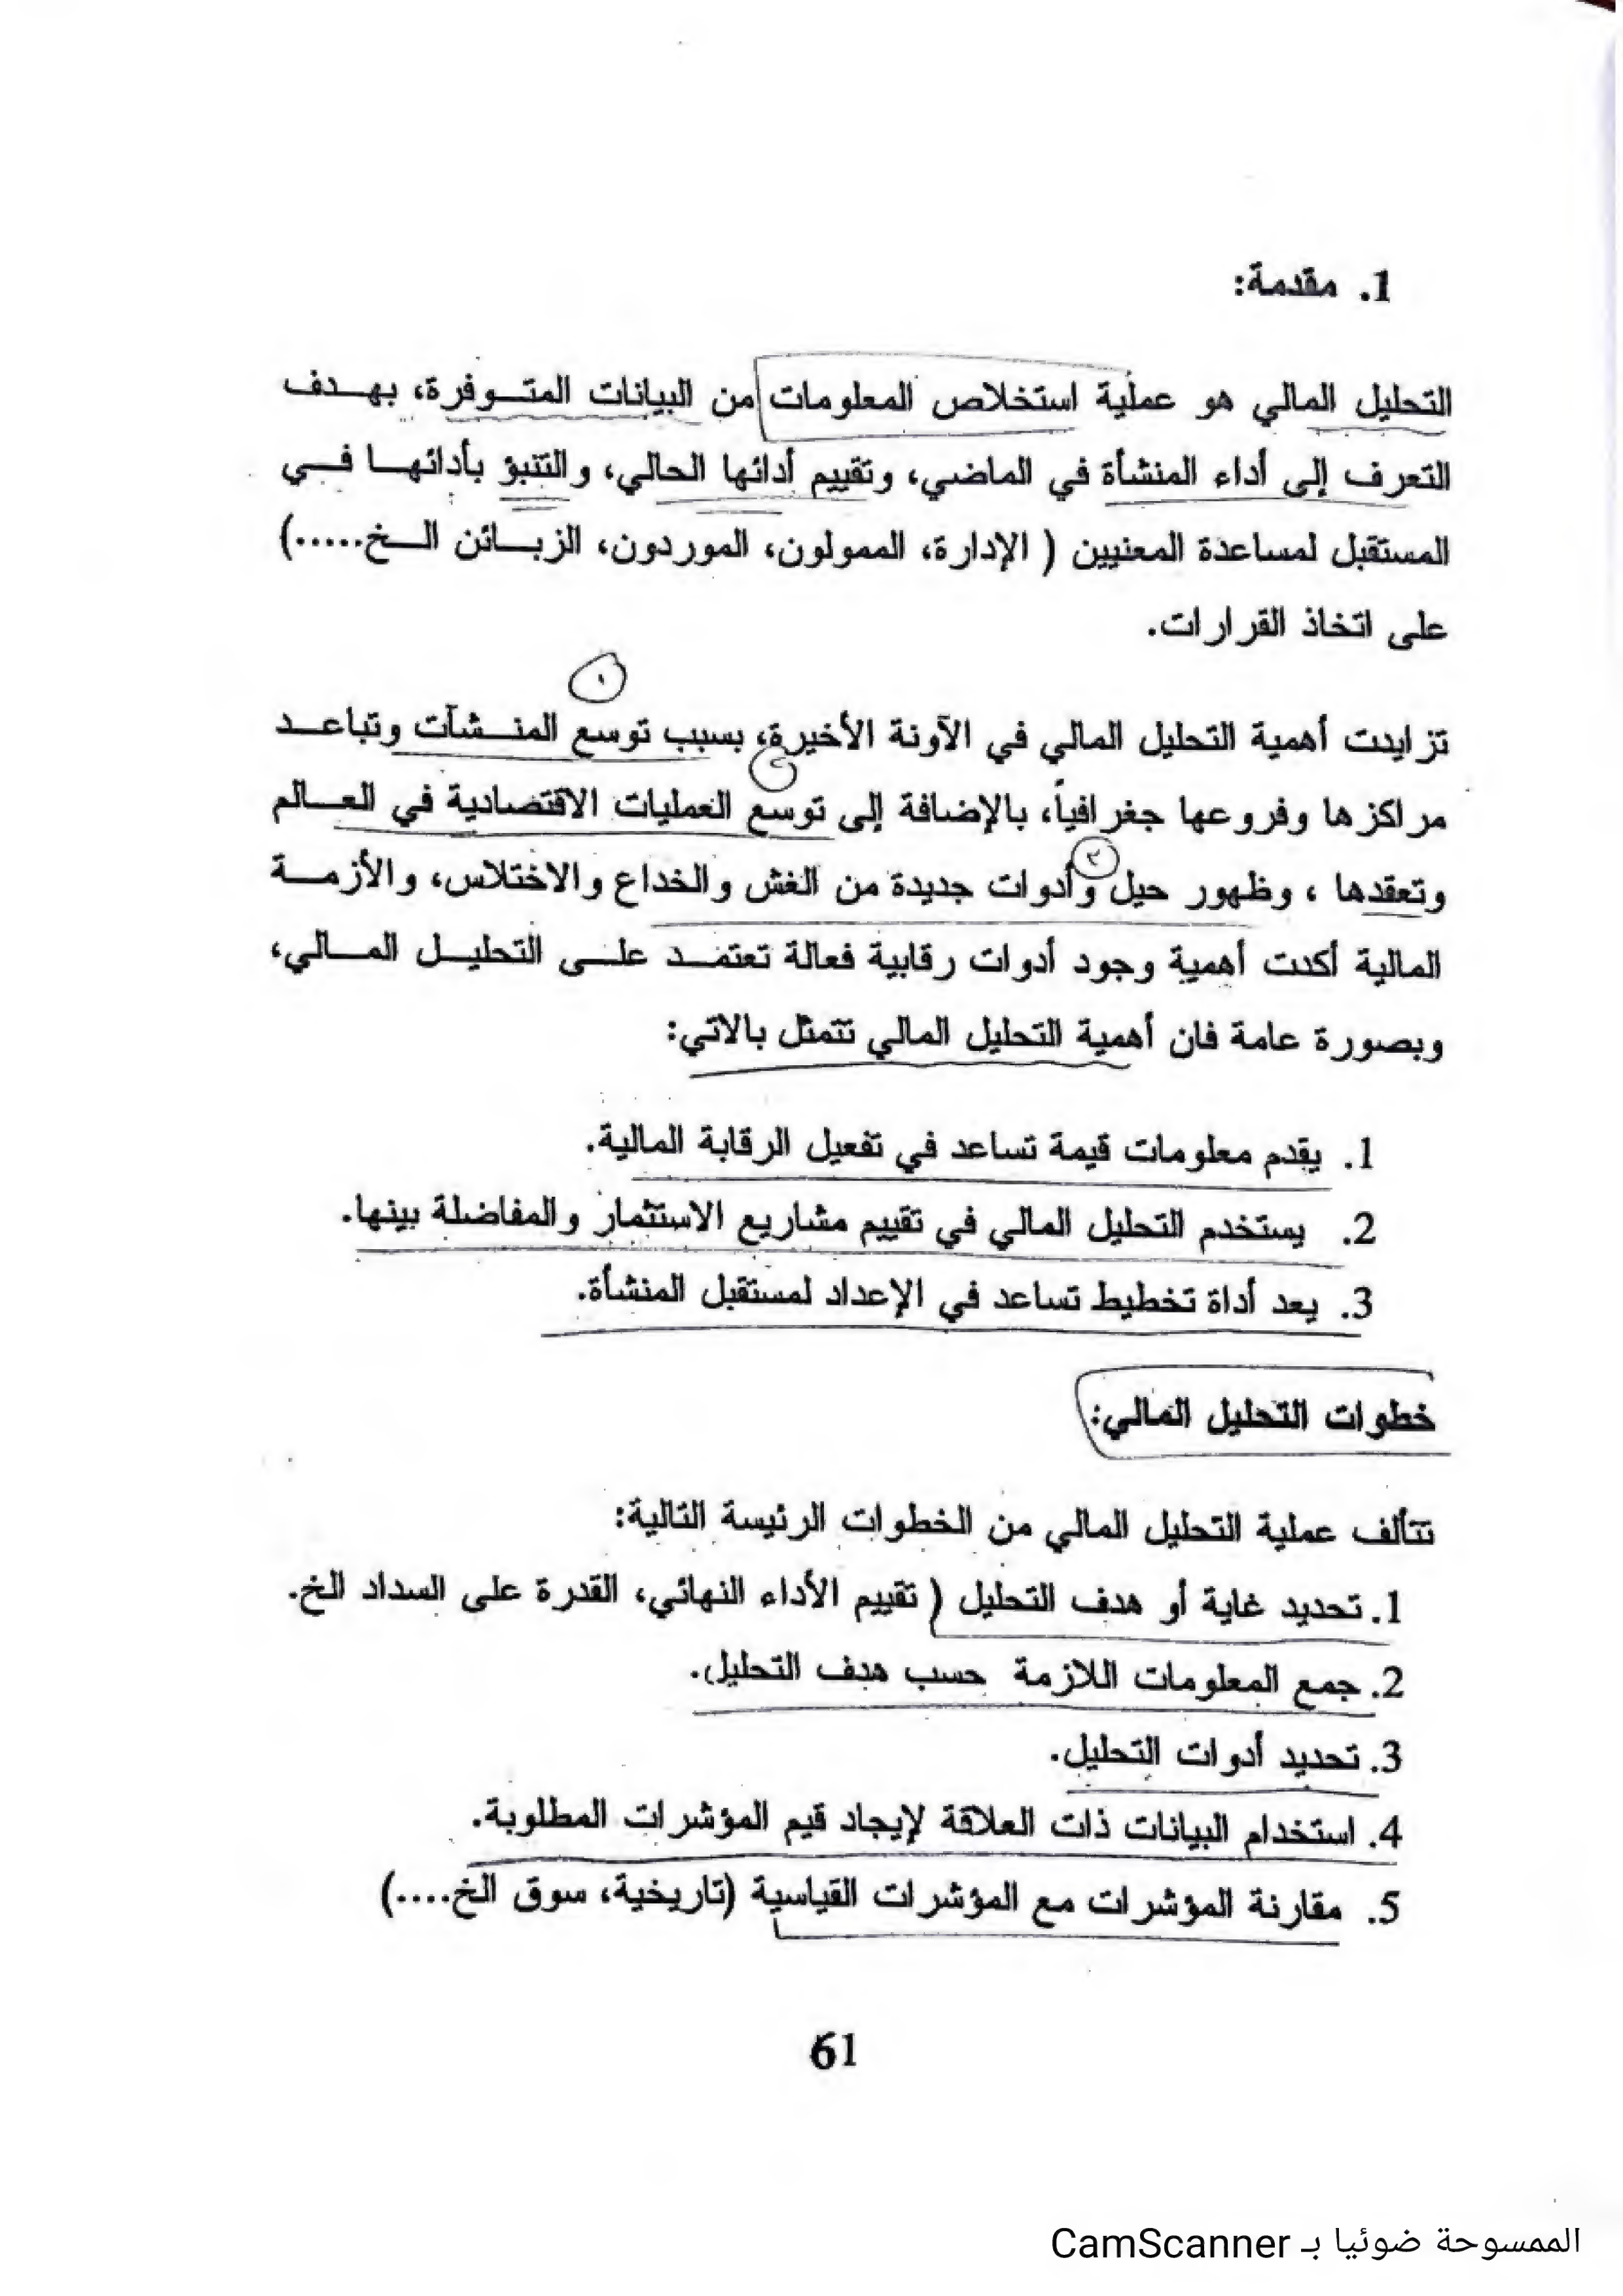 1. مقدمة:
التحليل المالي هو عملية استخلاص المعلومات من البيانات المتـوفرة، بهـدف
التعرف إلى أداء المنشأة في الماضي، وتقييم أدائها الحالي، والتنبؤ بأدائهـا فـي
المستقبل لمساعدة المعنيين ( الإدارة، الممولون، الموردون، الزبـائن الـخ.....)
على اتخاذ القرارات.
١
تزايدت أهمية التحليل المالي في الآونة الأخيرة، بسبب توسع المنـشآت وتباعـد
٢
مراكزها وفروعها جغرافياً، بالإضافة إلى توسع العمليات الاقتصادية في العـالم
٣
وتعقدها ، وظهور حيل وأدوات جديدة من الغش والخداع والاختلاس، والأزمـة
المالية أكدت أهمية وجود أدوات رقابية فعالة تعتمـد علـى التحليـل المـالي،
وبصورة عامة فان أهمية التحليل المالي تتمثل بالاتي:
1. يقدم معلومات قيمة تساعد في تفعيل الرقابة المالية.
2. يستخدم التحليل المالي في تقييم مشاريع الاستثمار والمفاضلة بينها.
3. يعد أداة تخطيط تساعد في الإعداد لمستقبل المنشأة.
خطوات التحليل المالي:
تتألف عملية التحليل المالي من الخطوات الرئيسة التالية:
1. تحديد غاية أو هدف التحليل ( تقييم الأداء النهائي، القدرة على السداد الخ.
2. جمع المعلومات اللازمة حسب هدف التحليل).
3. تحديد أدوات التحليل.
4. استخدام البيانات ذات العلاقة لإيجاد قيم المؤشرات المطلوبة.
5. مقارنة المؤشرات مع المؤشرات القياسية (تاريخية، سوق الخ....)
61
الممسوحة ضوئيا بـ CamScanner